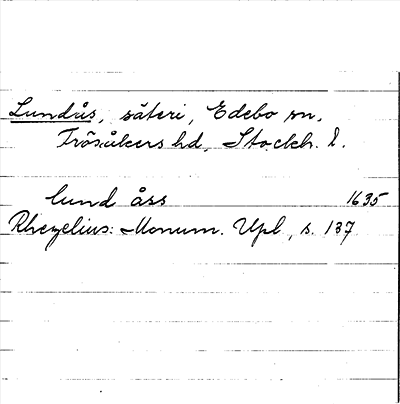 Lundås, säteri, Edebo sn,
Frösåkers hd, Stockh. l.
lund åss 1635
Rhezelius: Monum. Upl, s. 137